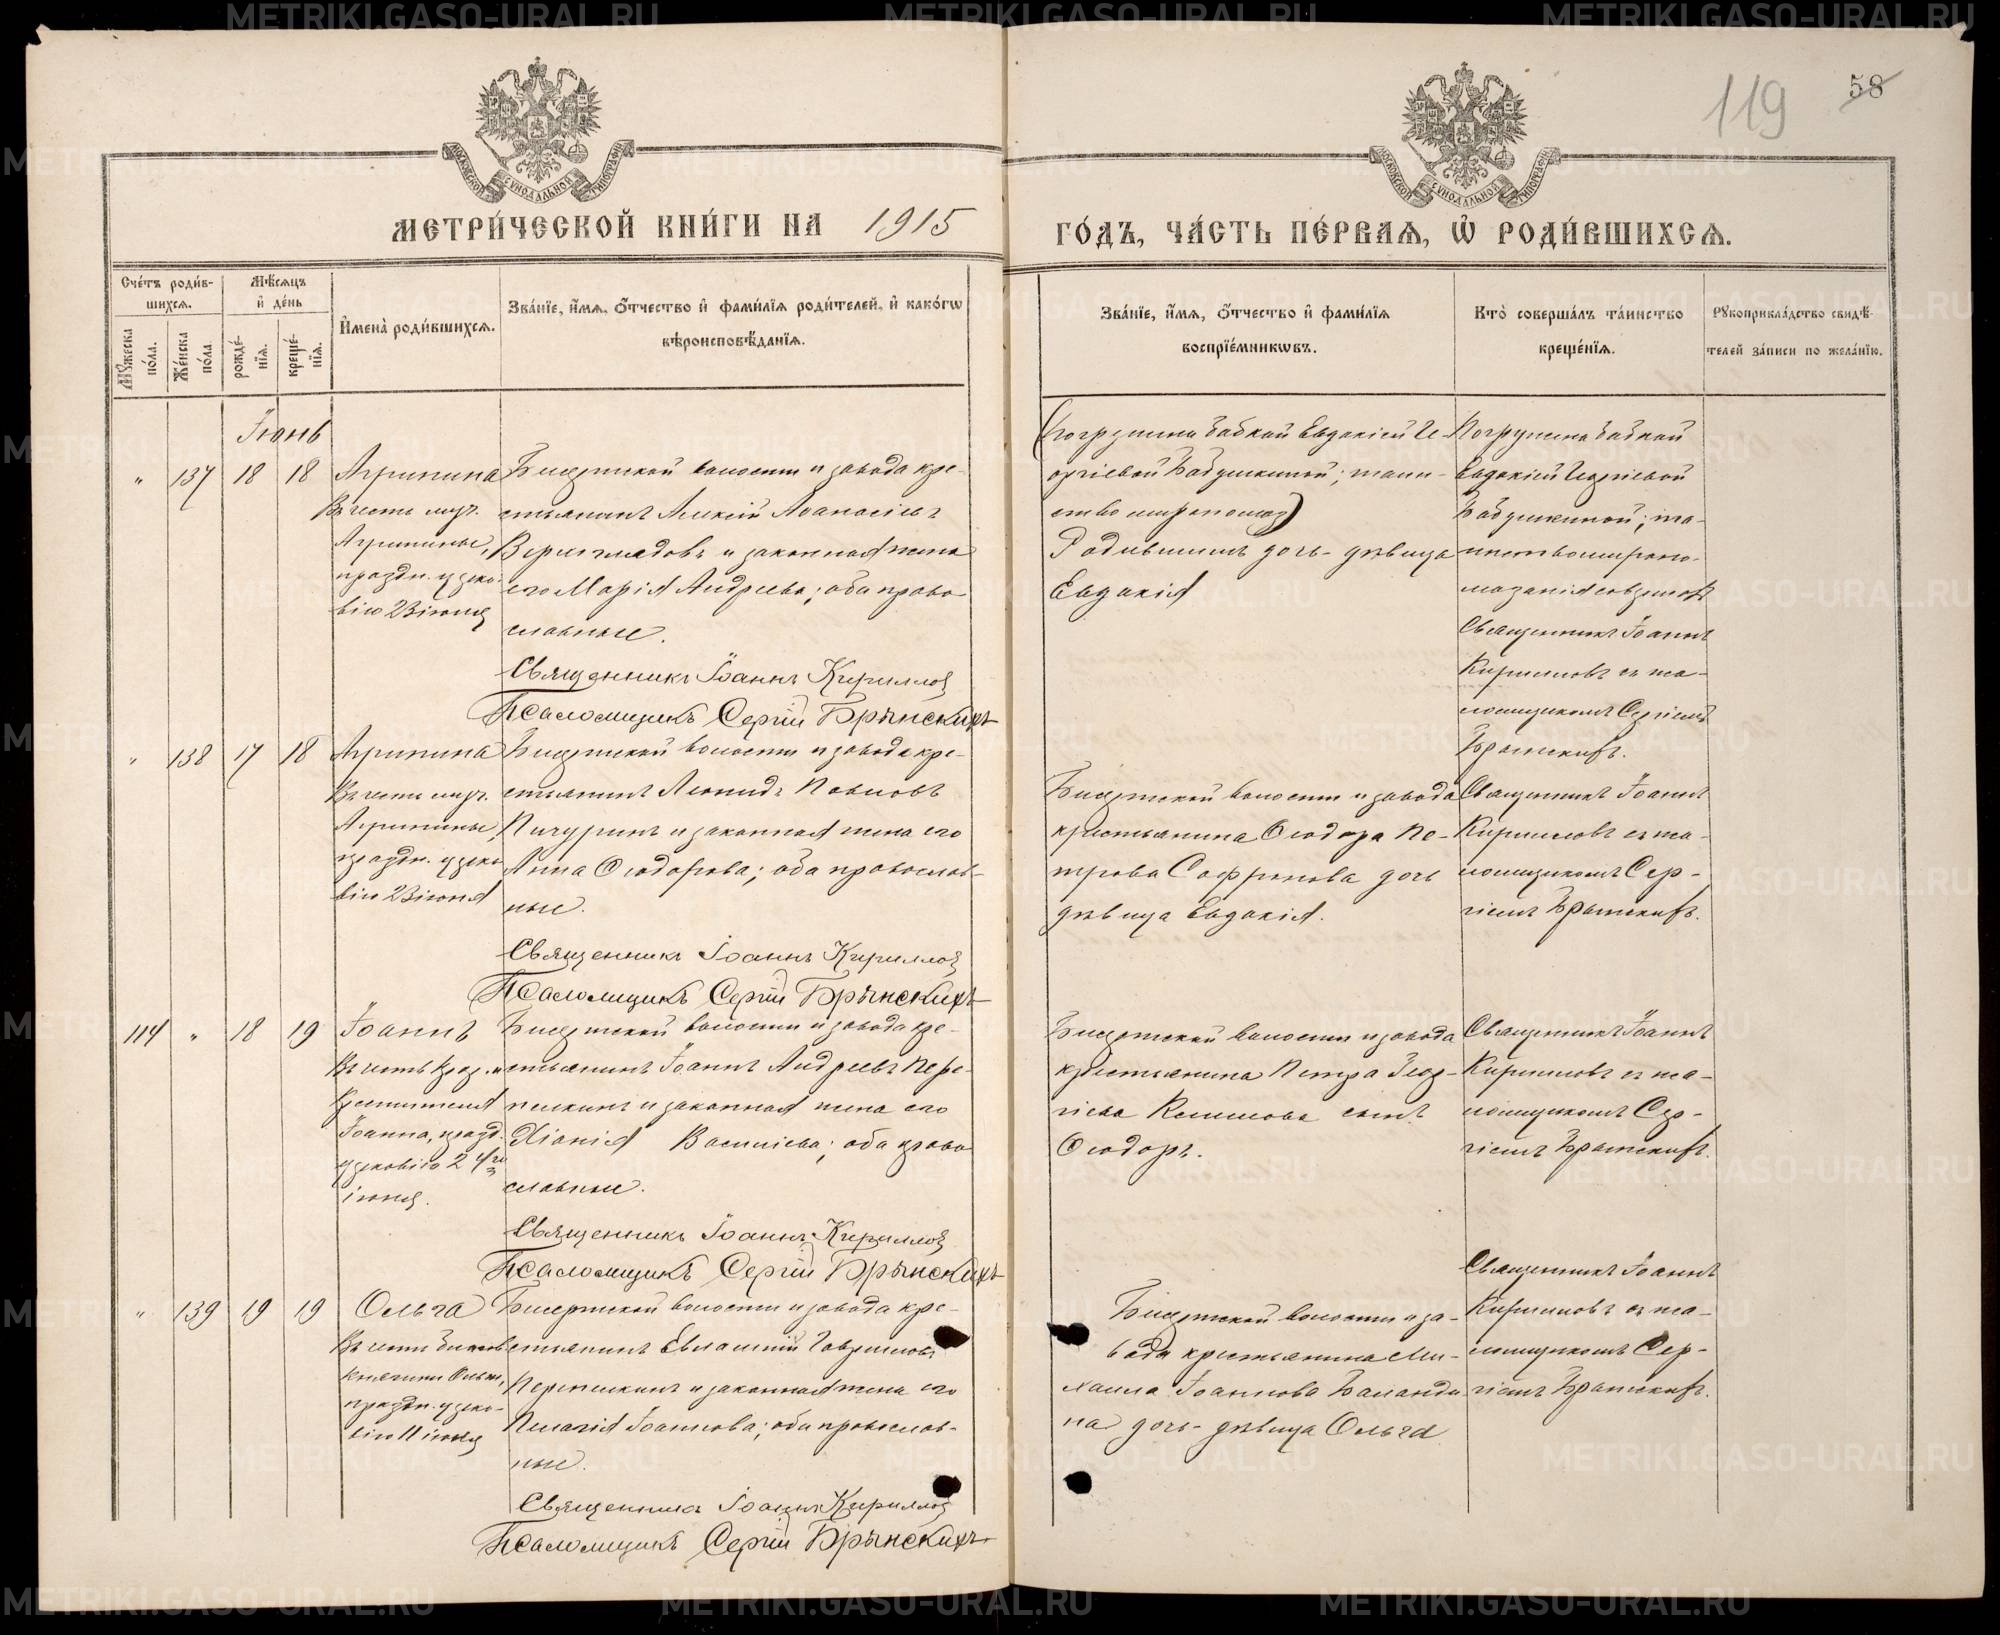 METRIKI.GASO-URAL.RU
119
58
МОСКОВСКОЙ СѴНОДАЛЬНОЙ ТИПОГРАФIИ
МОСКОВСКОЙ СѴНОДАЛЬНОЙ ТИПОГРАФIИ
МЕТРИ́ЧЕСКОЙ КНИ́ГИ НА 1915 ГО́ДЪ, ЧА́СТЬ ПЕ́РВАЯ, Ѡ РОДИ́ВШИХСЯ.
Сче́тъ роди́в-
шихся.
Мѣ́сяцъ
и де́нь
Мꙋ́жеска по́ла.
Же́нска по́ла
рожде́-
нїя.
креще́-
нїя.
Имена̀ роди́вшихся.
Зва́нїе, и́мя, ѻ́тчество и фами́лїя роди́телей, и како́гѡ
вѣроисповѣ́данїя.
Зва́нїе, и́мя, ѻ́тчество и фами́лїя
воспрїе́мникѡвъ.
Кто̀ соверша́лъ та́инство
креще́нїя.
Рꙋкоприкла́дство свидѣ́-
телей за́писи по жела́нїю.
Іюнь
" 137 18 18
Агрипина
Въ честь муч.
Агрипины,
праздн. церко-
вію 23 іюня
Бисертской волости и завода кре-
стьянинъ Алексій Аѳанасіевъ
и законная жена
его Марія Андреева; оба право
славные.
Священникъ Іоаннъ Кирилловъ
Псаломщикъ Сергій Брынскихъ
(Погружена бабкой Евдокіей Ге-
оргіевой Бабушкиной; таин-
ство
Родившимъ дочь-дѣвица
Евдокія
Погружена бабкой
Евдокіей Георгіевой
Бабушкиной; та-
инство миропо-
мазанія совершилъ
Священникъ Іоаннъ
Кирилловъ съ пса-
ломщикомъ Сергіемъ
Брынскихъ.
" 138 17 18
Агрипина
Въ честь муч.
Агрипины,
праздн. церко
вію 23 іюня
Бисертской волости и завода кре-
стьянинъ Леонидъ Павловъ
Пичугинъ и законная жена его
Анна Ѳеодорова; оба православ-
ные.
Священникъ Іоаннъ Кирилловъ
Псаломщикъ Сергій Брынскихъ
Бисертской волости и завода
крестьянина Ѳеодора Пе-
трова Сафронова дочь
дѣвица Евдокія.
Священникъ Іоаннъ
Кирилловъ съ пса-
ломщикомъ Сер-
гіемъ Брынскихъ.
114 " 18 19
Іоаннъ
Въ честь Прор. и
Крестителя
Іоанна, празд.
церковію 24 го
іюня.
Бисертской волости и завода кре-
стьянинъ Іоаннъ Андреевъ Пере-
пелкинъ и законная жена его
Хіонія Васильева; оба право
славные.
Священникъ Іоаннъ Кирилловъ
Псаломщикъ Сергій Брынскихъ
Бисертской волости и завода
крестьянина Петра Геор-
гіева сынъ
Ѳеодоръ.
Священникъ Іоаннъ
Кирилловъ съ пса-
ломщикомъ Сер-
гіемъ Брынскихъ.
" 139 19 19
Ольга
Въ честь благов
княгини Ольги,
праздн. церко-
вію 11 іюля
Бисертской волости и завода кре-
стьянинъ Евлампій Гавриловъ
Перепелкинъ и законная жена его
Пелагія Іоаннова; оба православ-
ные.
Священникъ Іоаннъ Кирилловъ
Псаломщикъ Сергій Брынскихъ
Бисертской волости и за-
вода крестьянина Ми-
хаила Іоаннова Баланди
на дочь-дѣвица Ольга
Священникъ Іоаннъ
Кирилловъ съ пса-
ломщикомъ Сер-
гіемъ Брынскихъ.